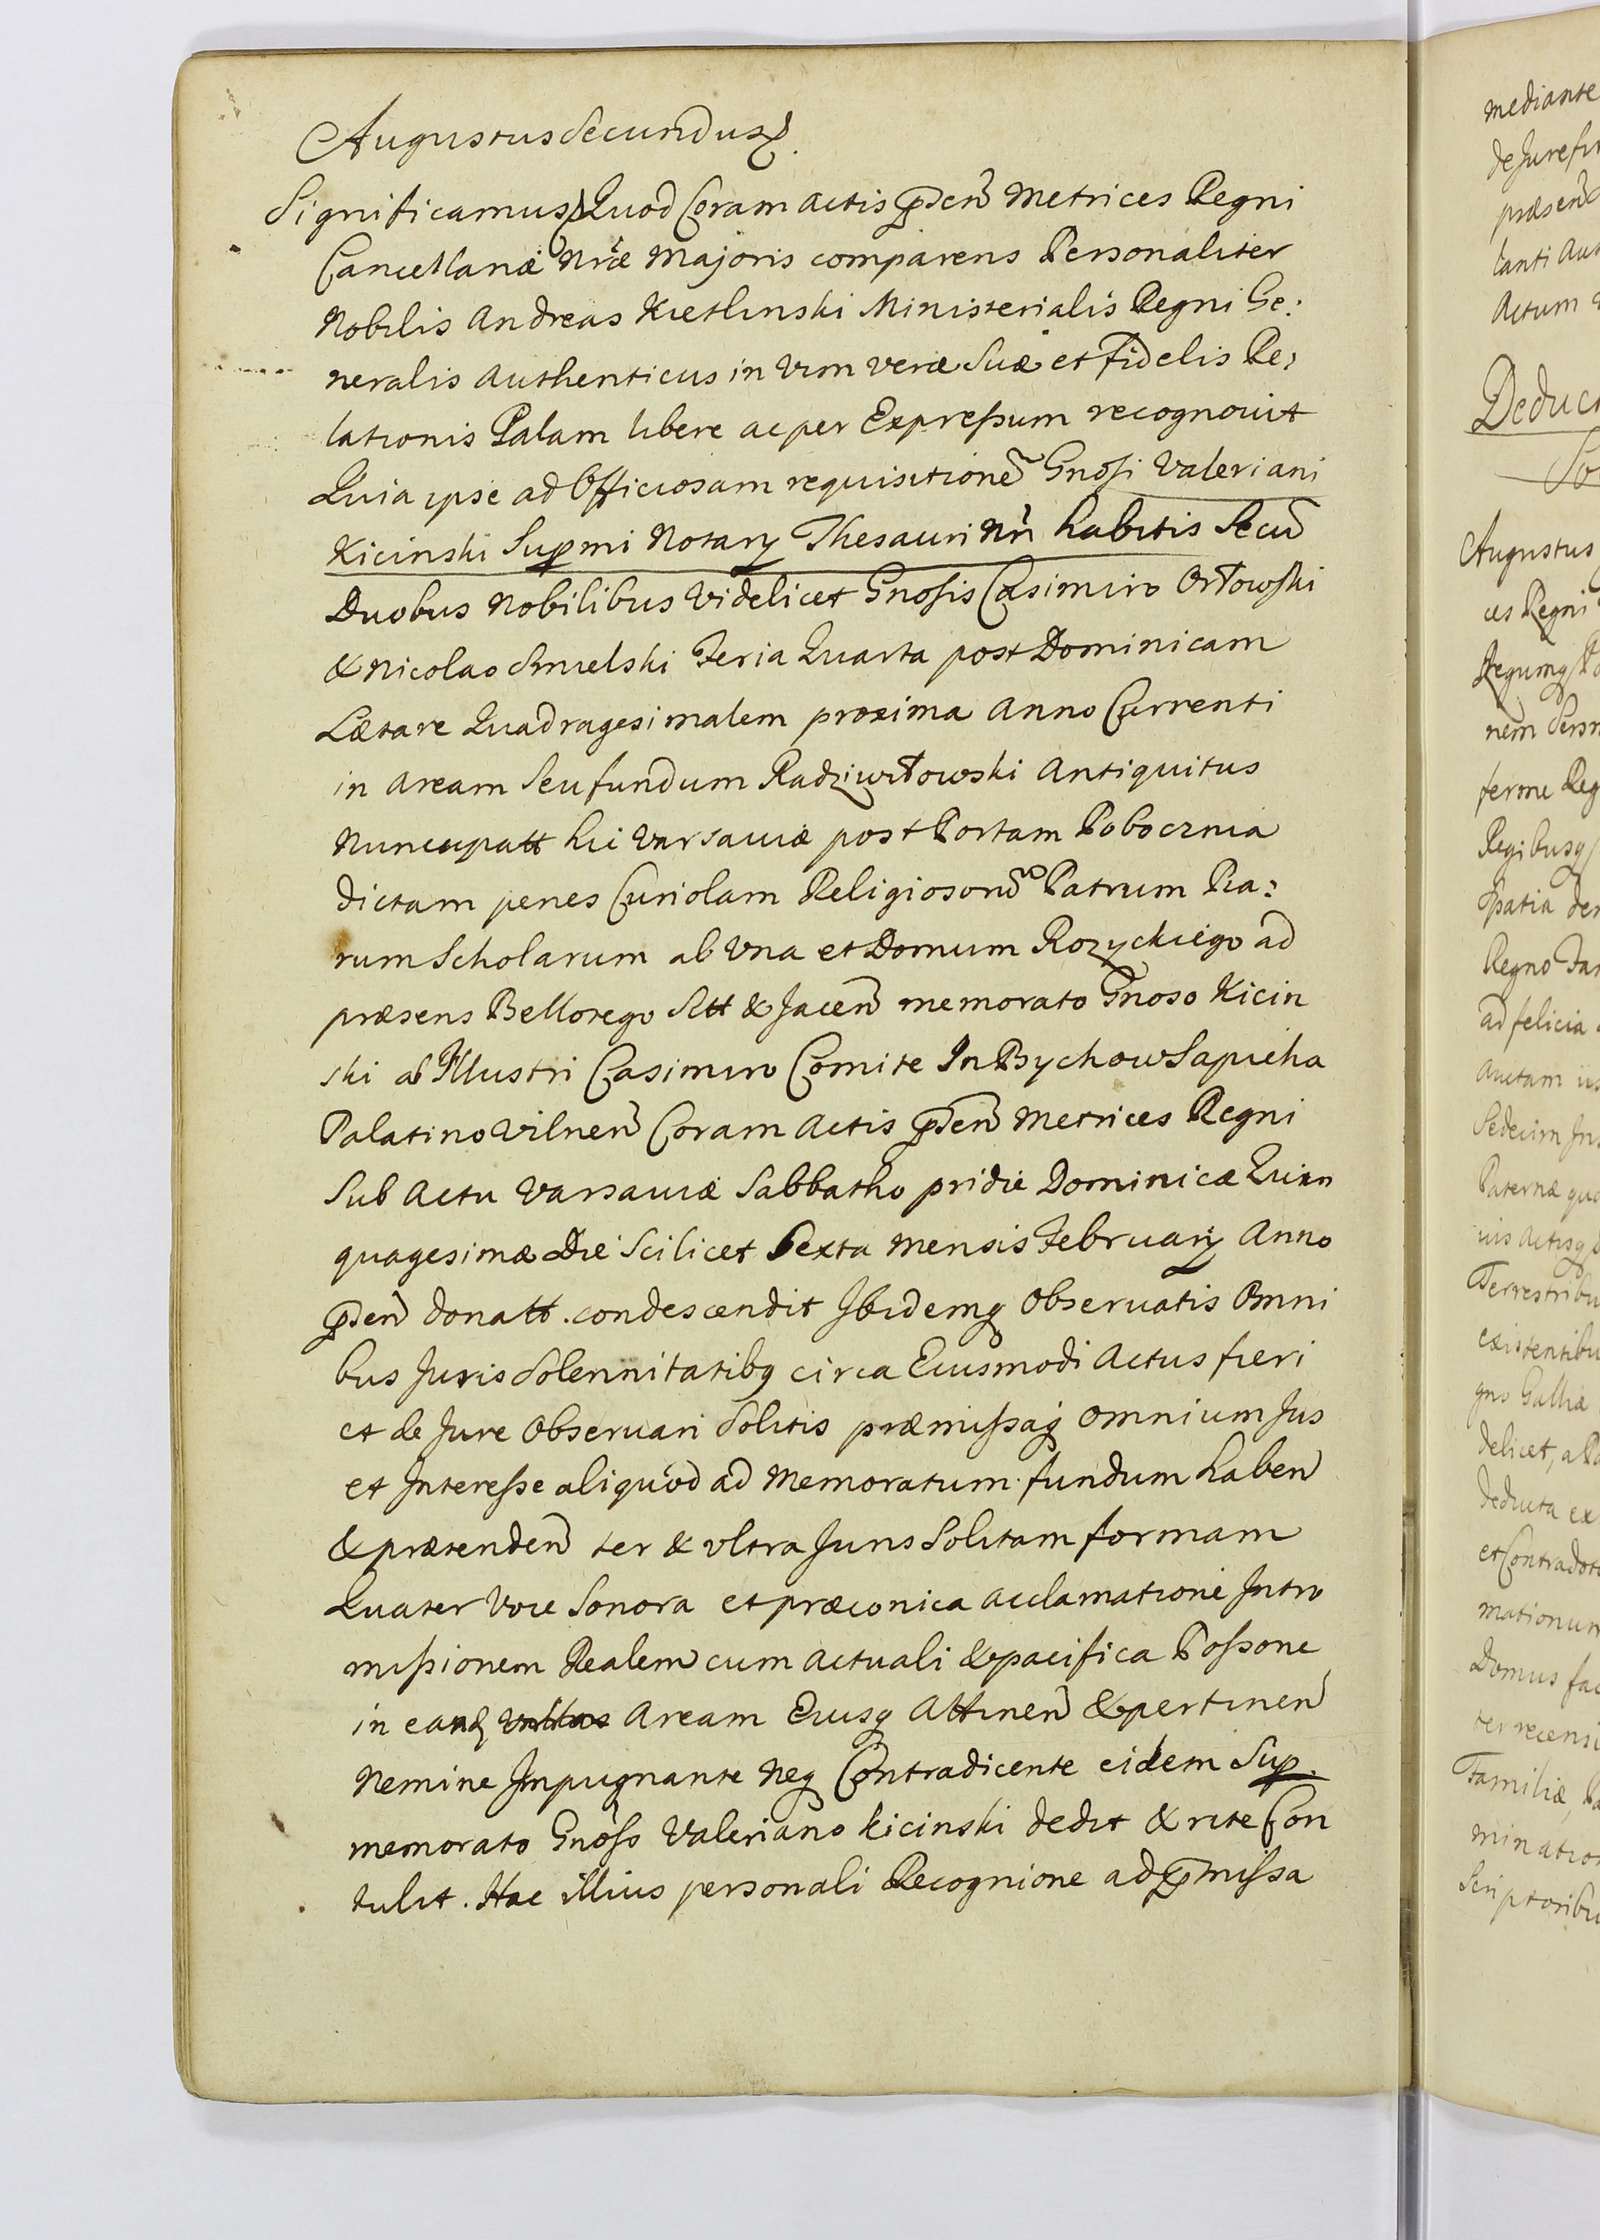 Augustus Secundus
Significamus Quod Coram Actis p̄sen̄ Metrices Regni
Cancellariæ Nr̄æ Majoris comparens Personaliter
Nobilis Andreas Kietlinski Ministerialis Regni Ge:
neralis Authenticus in Vim veræ Suæ et Fidelis Re:
lationis Palam libere ac per Expressum recognovit
Quia ipse ad Officiosam requisitionē Gnosi Valeriani
Kicinski Supmi Notarÿ Thesauri Nri habitis Secū
Duobus Nobilibus Videlicet Gnosis Casimiro Orłowski
& Nicolao Smielski Feria Quarta post Dominicam
Lætare Quadragesimalem proxima Anno Currenti
in Aream Seu fundum Radziwiłłowski Antiquitus
Nuncupatt hic Varsaviæ post Portam Pobocznia
dictam penes Curiolam Religiosorū Patrum Pia:
rum Scholarum ab Una et Domum Rozyckiego ad
præsens Bellotego Sitt & Jacen̄ memorato Gnoso Kicin
ski ab Illustri Casimiro Comite In Bychow Sapieha
Palatino Vilnen̄ Coram Actis p̄sen̄ Metrices Regni
Sub Actu Varsaviæ Sabbatho pridie Dominicæ Quin
quagesimæ Die Scilicet Sexta Mensis Februarÿ Anno
p̄sen̄ donatt. condescendit Ibidemq Observatis Omni
bus Juris Solennitatibq circa Eiusmodi Actus fieri
et de Jure Observari Solitis præmissaq omnium Jus
et Interesse aliquod ad Memoratum fundum haben̄
& prætenden̄ ter & ultra Juris Solitam formam
Quater Voce Sonora et præconica acclamatione Intro
missionem Realem cum Actuali & pacifica Possone
in eand Aream Eiusq Attinen̄ & pertinen̄
Nemine Impugnante Neq Contradicente eidem Sup.
memorato Gnoso Valeriano Kicinski dedit & rite Con
tulit. Hac illius personali Recognione ad p̄missa
mediante
de Jure
præsen̄
Actum
Augustus
ces Regni
Regumq
nem
Regibusq
spatia
Regno
ad felicia
Auctam
Sedecim
Paternæ
Terrestribu
existentibu
gno Galliæ
delicet, a
deducta ex
et Contradot
mationum
Domus
ter recensi
Familiæ,
minatio
Scriptoribu